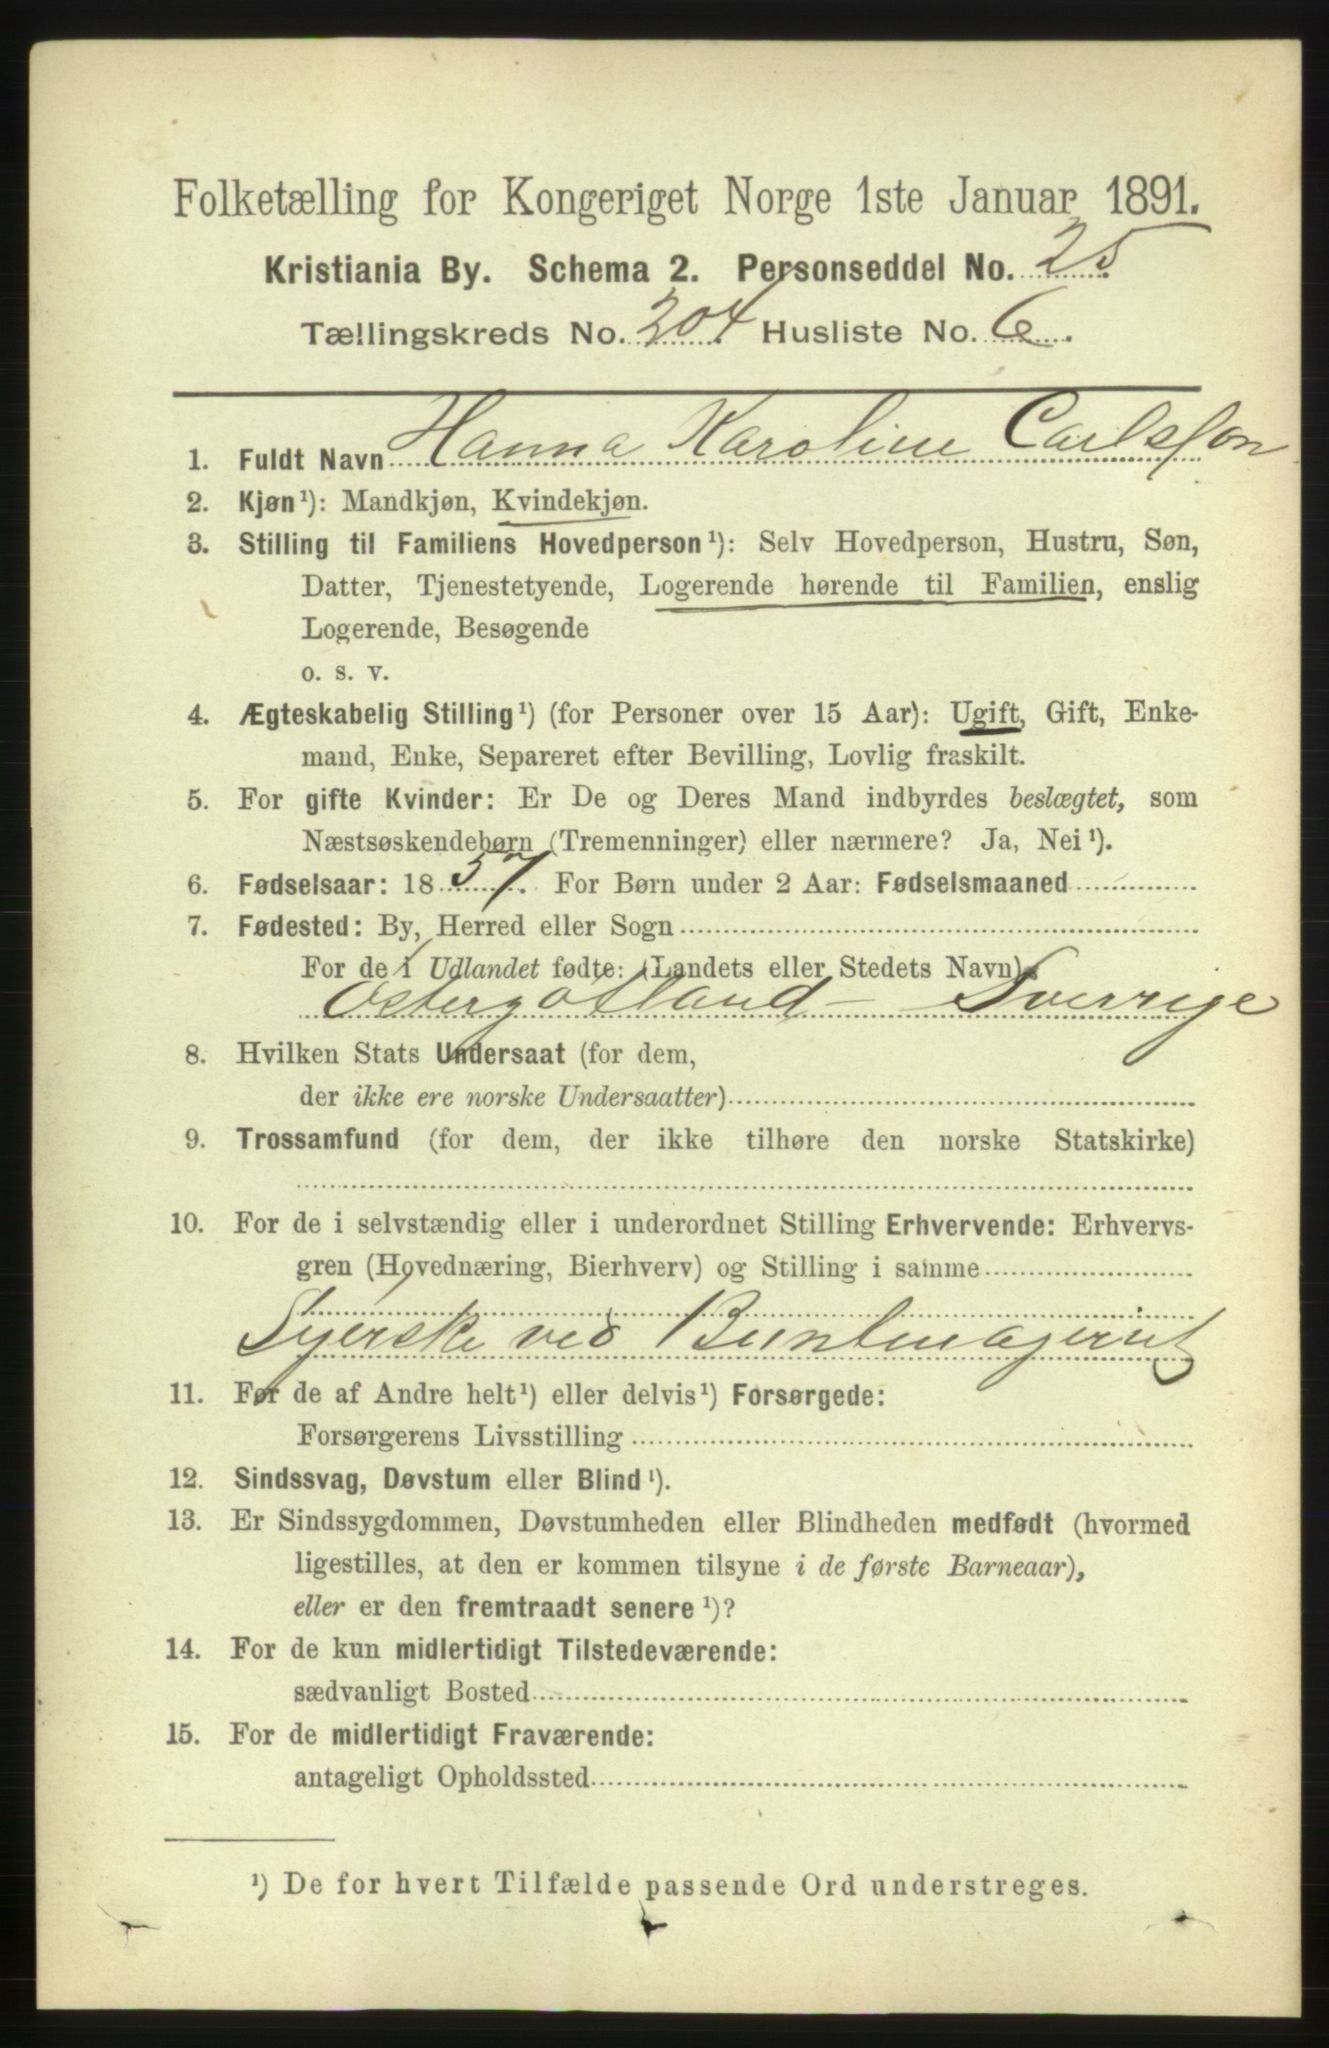 Folketælling for Kongeriget Norge 1ste Januar 1891.
Kristiania By. Schema 2. Personseddel No. 25
Tællingskreds No. 204 Husliste No. 6.
1. Fuldt Navn Hanna Karoline Carlsson
2. Kjøn¹): Mandkjøn, Kvindekjøn.
3. Stilling til Familiens Hovedperson¹): Selv Hovedperson, Hustru, Søn,
Datter, Tjenestetyende, Logerende hørende til Familien, enslig
Logerende, Besøgende
o. s. v.
4. Ægteskabelig Stilling¹) (for Personer over 15 Aar): Ugift, Gift, Enke-
mand, Enke, Separeret efter Bevilling, Lovlig fraskilt.
5. For gifte Kvinder: Er De og Deres Mand indbyrdes beslægtet, som
Næstsøskendebørn (Tremenninger) eller nærmere? Ja, Nei¹).
6. Fødselsaar: 1857. For Børn under 2 Aar: Fødselsmaaned
7. Fødested: By, Herred eller Sogn
For de i Udlandet fødte: (Landets eller Stedets Navn)
Østergøtland – Sverrige
8. Hvilken Stats Undersaat (for dem,
der ikke ere norske Undersaatter)
9. Trossamfund (for dem, der ikke tilhøre den norske Statskirke)
10. For de i selvstændig eller i underordnet Stilling Erhvervende: Erhvervs-
gren (Hovednæring, Bierhverv) og Stilling i samme
Syerske ved Buntmageriet
11. For de af Andre helt¹) eller delvis¹) Forsørgede:
Forsørgerens Livsstilling
12. Sindssvag, Døvstum eller Blind¹).
13. Er Sindssygdommen, Døvstumheden eller Blindheden medfødt (hvormed
ligestilles, at den er kommen tilsyne i de første Barneaar),
eller er den fremtraadt senere¹)?
14. For de kun midlertidigt Tilstedeværende:
sædvanligt Bosted
15. For de midlertidigt Fraværende:
antageligt Opholdssted
¹) De for hvert Tilfælde passende Ord understreges.